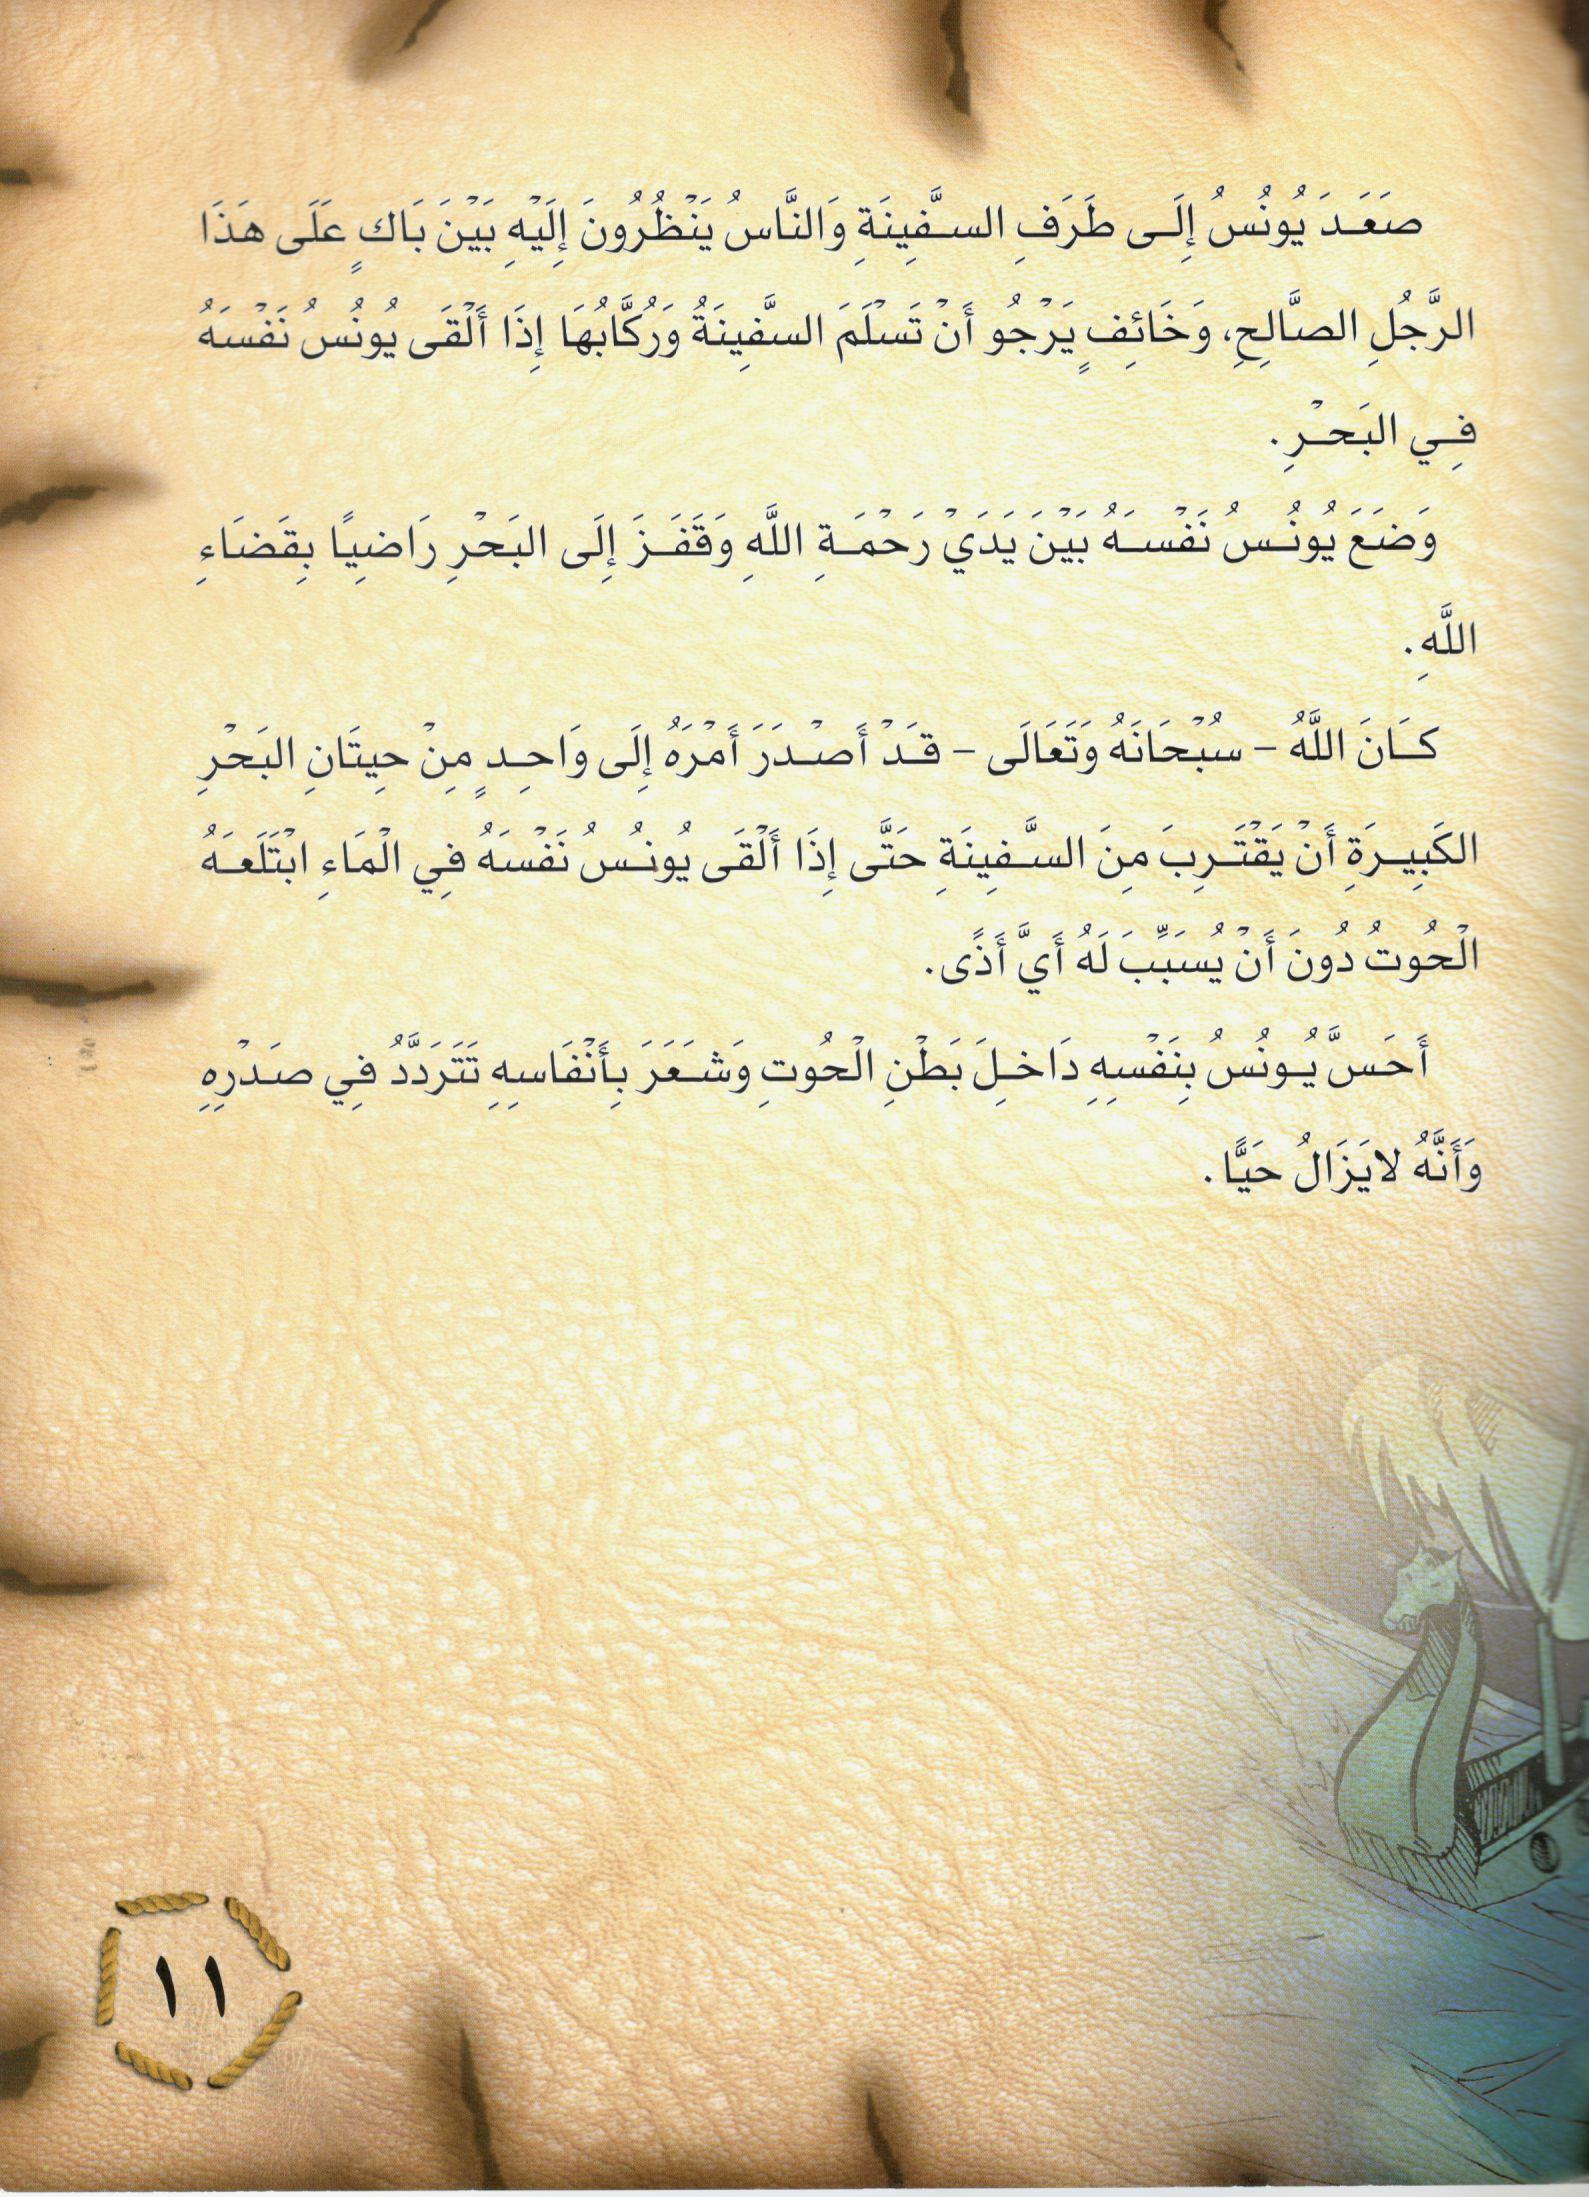 صَعَدَ يُونُسُ إِلَى طَرَفِ السَّفِينَةِ وَالنَّاسُ يَنْظُرُونَ إِلَيْهِ بَيْنَ بَاكٍ عَلَى هَذَا
الرَّجُلِ الصَّالِحِ، وَخَائِفٍ يَرْجُو أَنْ تَسْلَمَ السَّفِينَةُ وَرُكَّابُهَا إِذَا أَلْقَى يُونُسُ نَفْسَهُ
فِي البَحْرِ.
وَضَعَ يُونُسُ نَفْسَهُ بَيْنَ يَدَيْ رَحْمَةِ اللَّهِ وَقَفَزَ إِلَى البَحْرِ رَاضِيًا بِقَضَاءِ
اللَّهِ.
كَانَ اللَّهُ - سُبْحَانَهُ وَتَعَالَى - قَدْ أَصْدَرَ أَمْرَهُ إِلَى وَاحِدٍ مِنْ حِيتَانِ البَحْرِ
الكَبِيرَةِ أَنْ يَقْتَرِبَ مِنَ السَّفِينَةِ حَتَّى إِذَا أَلْقَى يُونُسُ نَفْسَهُ فِي الْمَاءِ ابْتَلَعَهُ
الْحُوتُ دُونَ أَنْ يُسَبِّبَ لَهُ أَيَّ أَذًى.
أَحَسَّ يُونُسُ بِنَفْسِهِ دَاخِلَ بَطْنِ الْحُوتِ وَشَعَرَ بِأَنْفَاسِهِ تَتَرَدَّدُ فِي صَدْرِهِ
وَأَنَّهُ لايَزَالُ حَيًّا.
١١